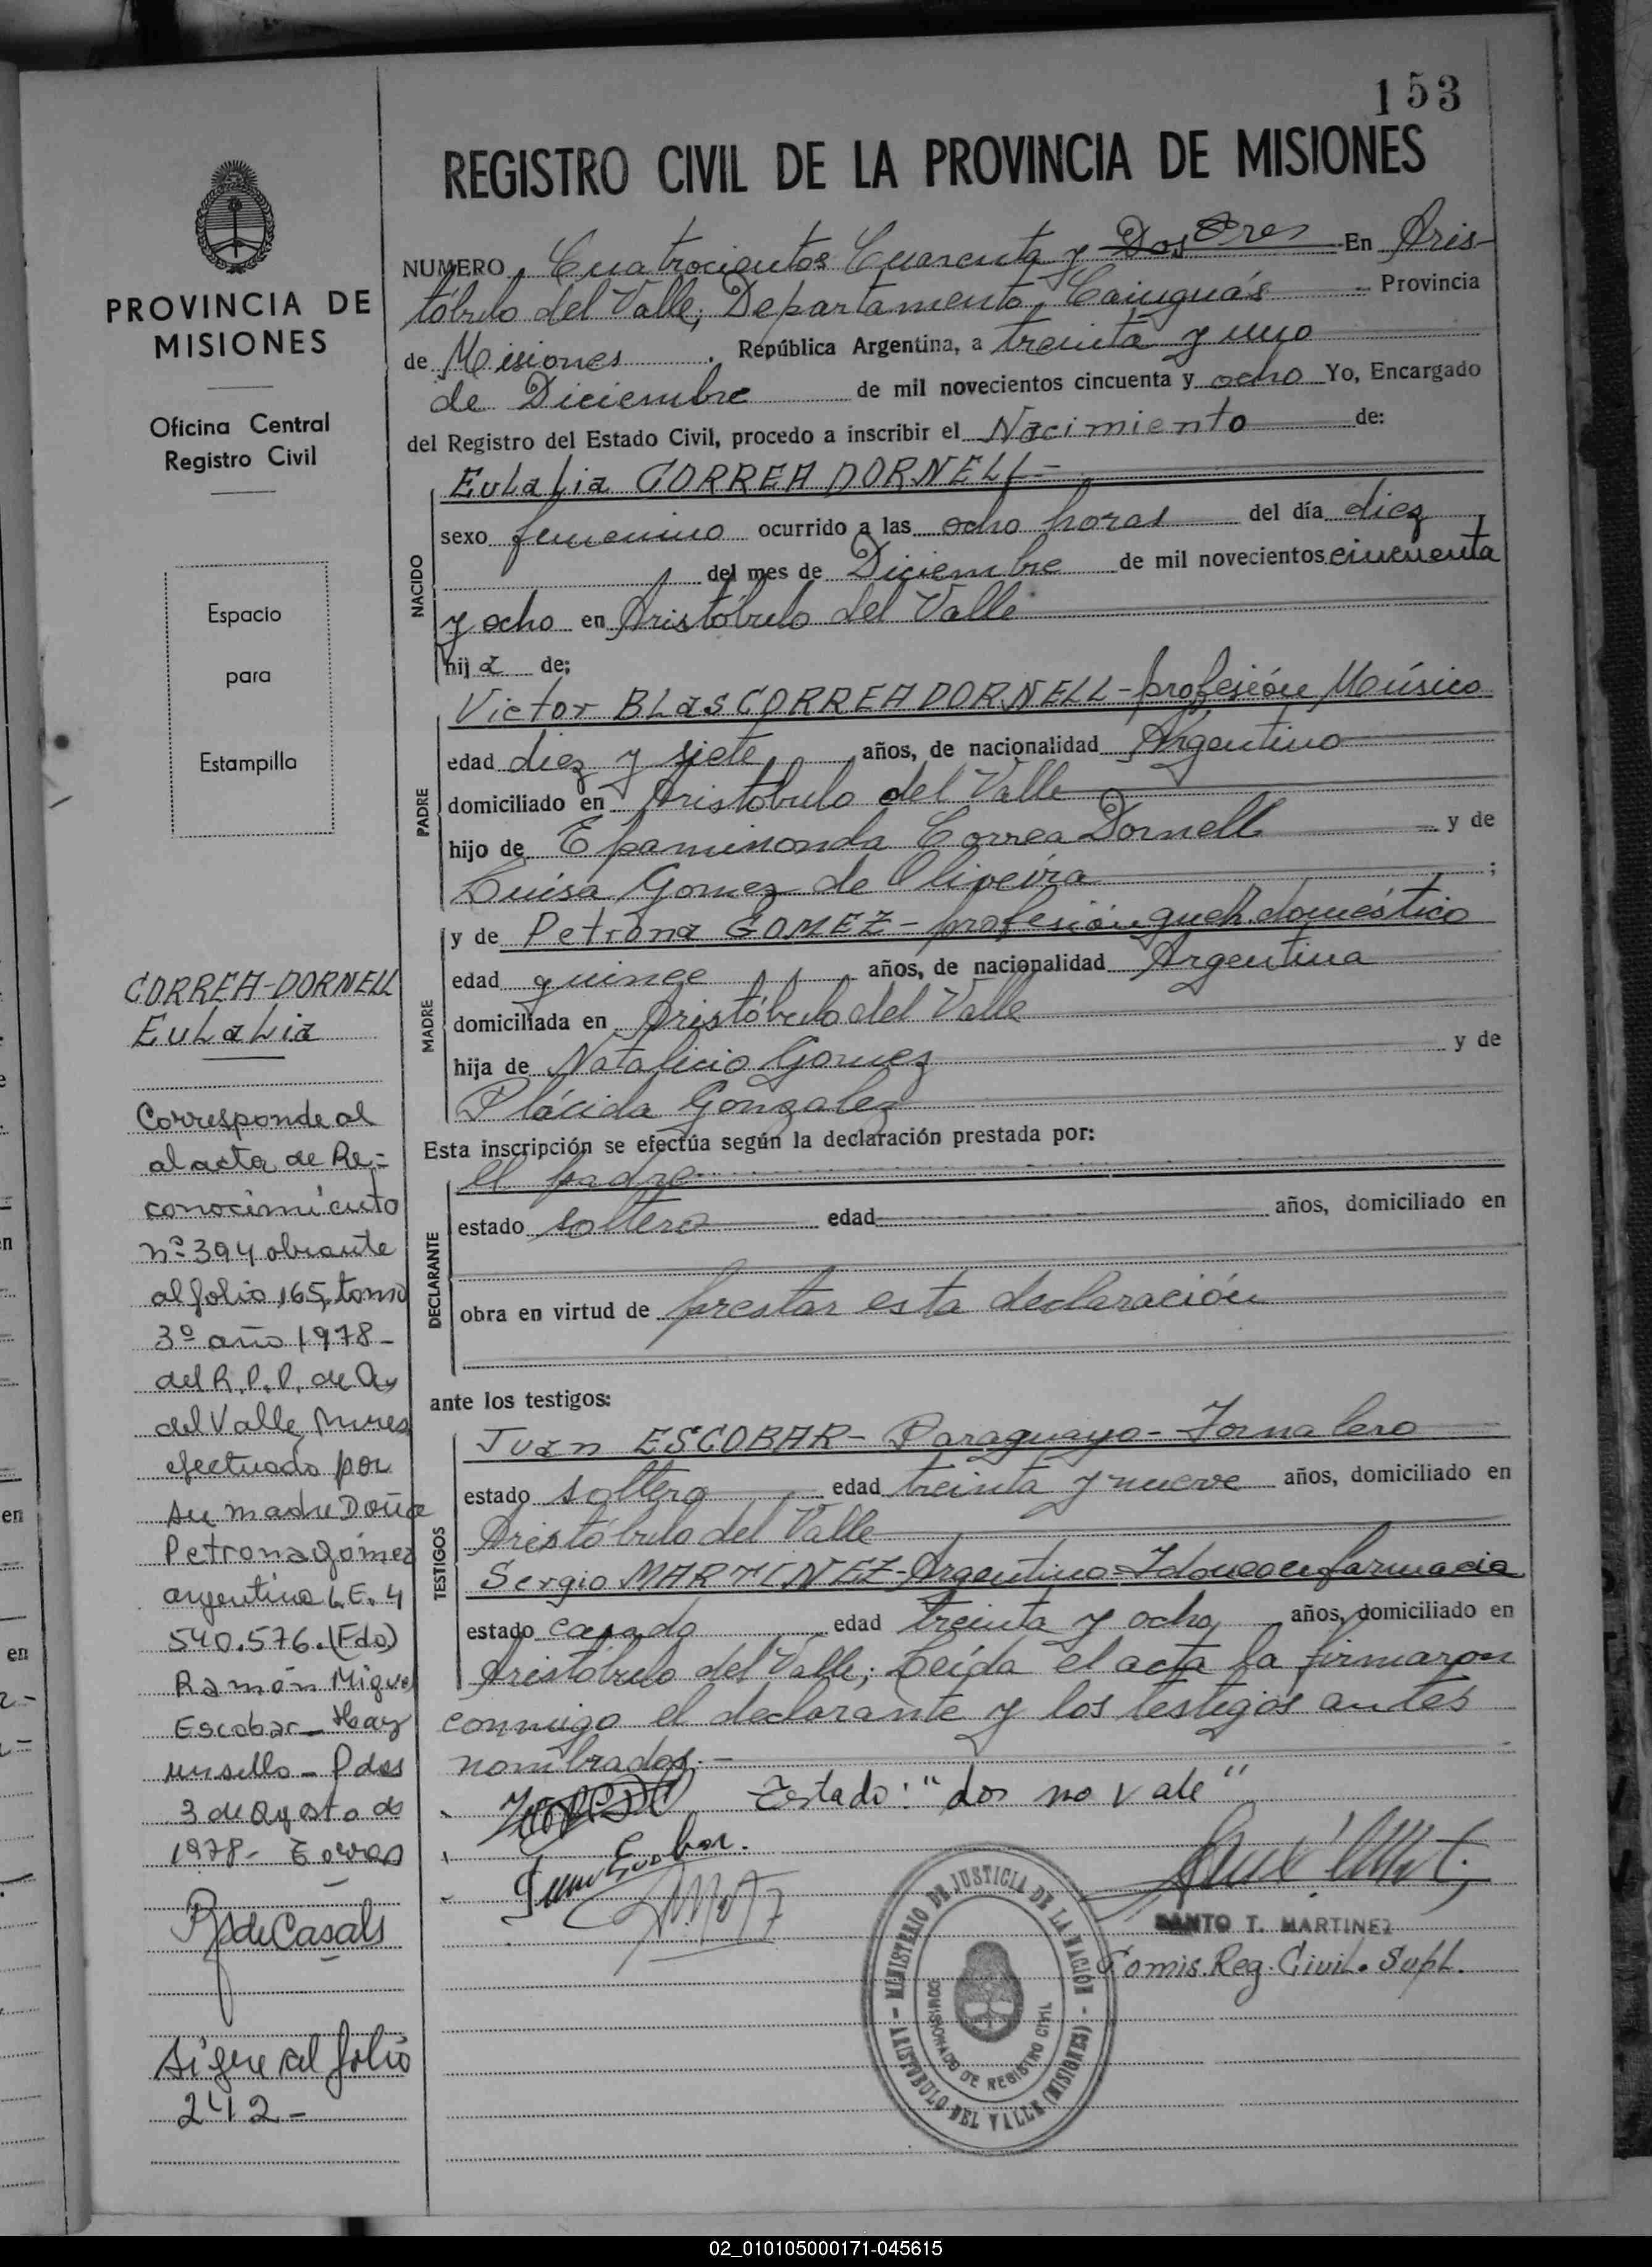 153
REGISTRO CIVIL DE LA PROVINCIA DE MISIONES
NUMERO Cuatrocientos Cuarenta y Dos Tres En Aris-
tóbulo del Valle, Departamento, Cainguás Provincia
de Misiones. República Argentina, a treinta y uno
de Diciembre de mil novecientos cincuenta y ocho Yo, Encargado
del Registro del Estado Civil, procedo a inscribir el Nacimiento de:
NACIDO
Eulalia CORREA DORNELL-
sexo femenino ocurrido a las ocho horas del día diez
del mes de Diciembre de mil novecientos cincuenta
y ocho en Aristóbulo del Valle
hija de;
PADRE
Victor BLas CORREA DORNELL - profesión, Músico
edad diez y siete, años, de nacionalidad Argentino
domiciliado en Aristóbulo del Valle
hijo de Epaminonda Correa Dornell y de
Luisa Gomez de Oliveira ;
MADRE
y de Petrona GOMEZ - profesión queh. doméstico
edad quince años, de nacionalidad Argentina
domiciliada en Aristóbulo del Valle
hija de Natalicio Gomez y de
Plácida Gonzalez
Esta inscripción se efectúa según la declaración prestada por:
DECLARANTE
el padre
estado soltero edad años, domiciliado en
obra en virtud de prestar esta declaración
ante los testigos:
TESTIGOS
Juan ESCOBAR - Paraguayo - Jornalero
estado soltero edad treinta y nueve años, domiciliado en
Aristóbulo del Valle
Sergio MARTINEZ - Argentino - Idoneo en farmacia
estado casado edad treinta y ocho, años, domiciliado en
Aristobulo del Valle; Leída el acta la firmaron
conmigo el declarante y los testigos antes
nombrados.-
Testado: "dos no vale"
Juan Escobar.
SANTO T. MARTINEZ
Comis. Reg. Civil. Supl.
- MINISTERIO DE JUSTICIA DE LA NACION -
ARISTOBULO DEL VALLE (MISIONES)
COMISIONADO DE REGISTRO CIVIL
PROVINCIA DE
MISIONES
Oficina Central
Registro Civil
Espacio
para
Estampilla
CORREA-DORNELL
Eulalia
Corresponde al
al acta de Re-
conocimiento
nº 394 obrante
al folio 165, tomo
3º año 1978-
del R.P.P. de A.
del Valle, Mnes
efectuado por
su madre Doña
Petrona Gómez
argentina L.E. 4
540.576. (Fdo)
Ramón Miguel
Escobar - Hay
un sello - Pdas
3 de Agosto de
1978-
R de Casals
Sigue al folio
242-
02_010105000171-045615